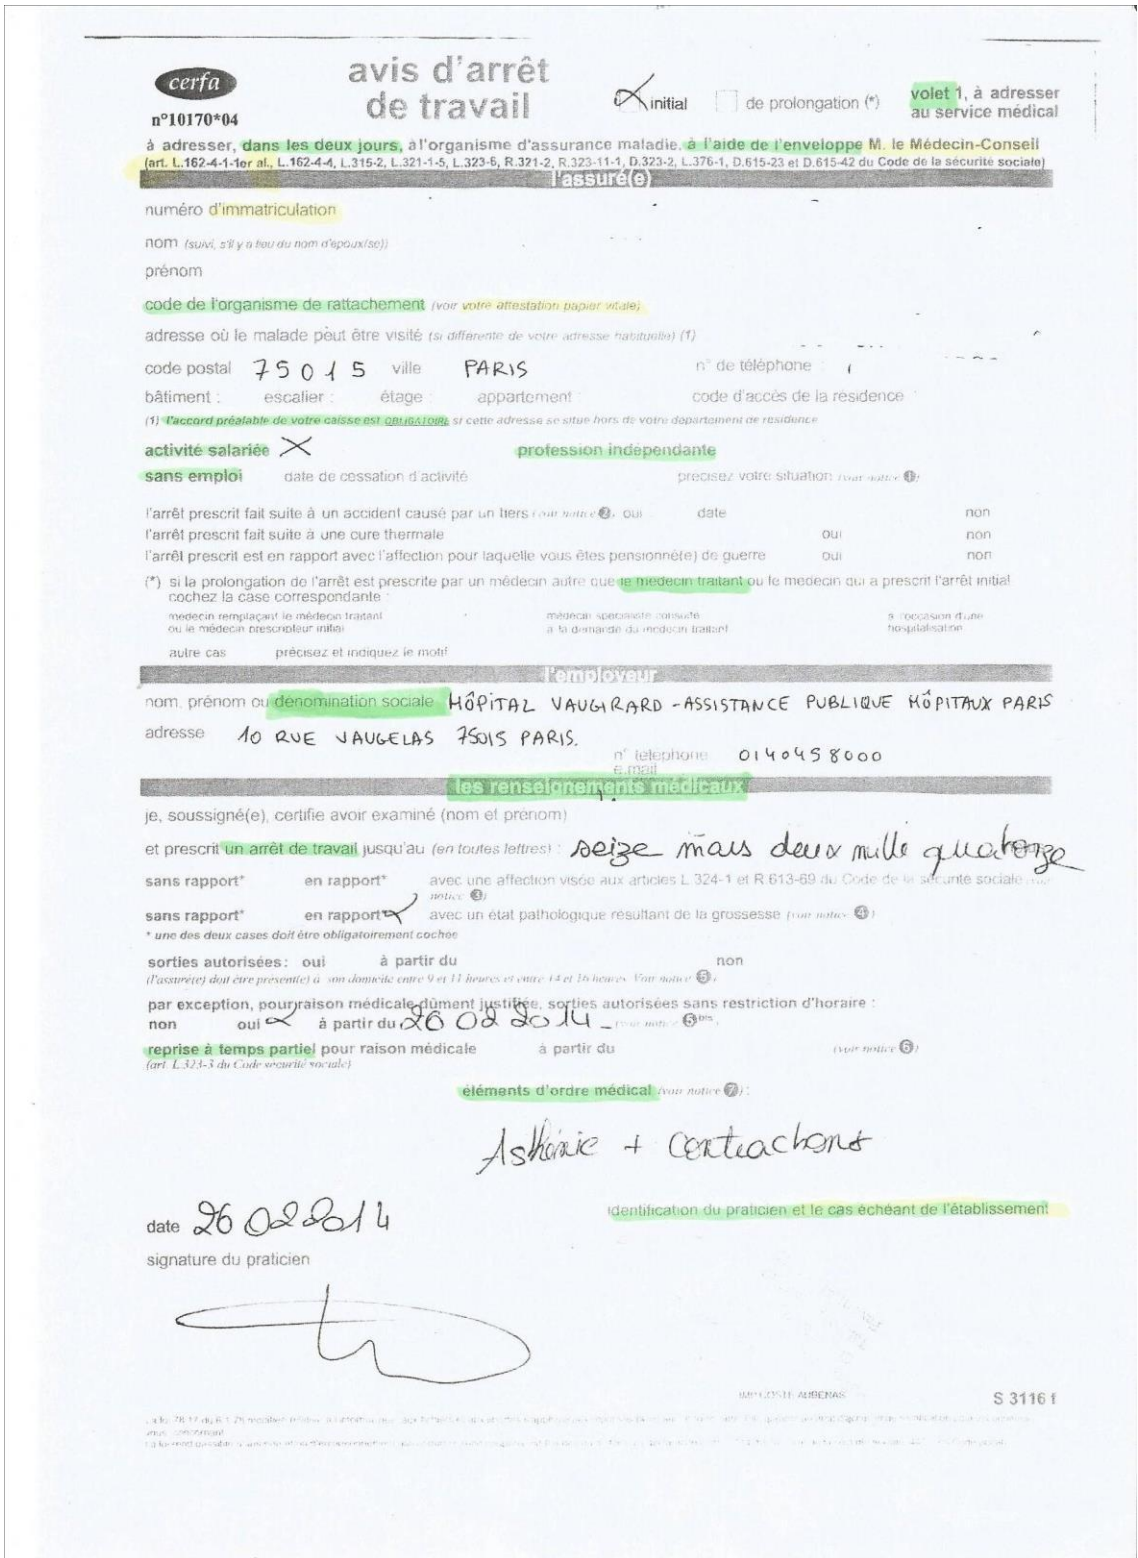 cerfa
n°10170*04
avis d'arrêt
de travail
X initial
de prolongation (*)
volet 1, à adresser
au service médical
à adresser, dans les deux jours, à l'organisme d'assurance maladie, à l'aide de l'enveloppe M. le Médecin-Conseil
(art. L.162-4-1-1er al., L.162-4-4, L.315-2, L.321-1-5, L.323-6, R.321-2, R.323-11-1, D.323-2, L.376-1, D.615-23 et D.615-42 du Code de la sécurité sociale)
l'assuré(e)
numéro d'immatriculation
nom (suivi, s'il y a lieu du nom d'époux(se))
prénom
code de l'organisme de rattachement (voir votre attestation papier vitale)
adresse où le malade peut être visité (si différente de votre adresse habituelle) (1)
code postal 75015 ville PARIS n° de téléphone
bâtiment : escalier : étage : appartement : code d'accès de la résidence
(1) l'accord préalable de votre caisse est OBLIGATOIRE si cette adresse se situe hors de votre département de résidence
activité salariée X profession indépendante
sans emploi date de cessation d'activité précisez votre situation (voir notice 1)
l'arrêt prescrit fait suite à un accident causé par un tiers (voir notice 2) oui date non
l'arrêt prescrit fait suite à une cure thermale oui non
l'arrêt prescrit est en rapport avec l'affection pour laquelle vous êtes pensionné(e) de guerre oui non
(*) si la prolongation de l'arrêt est prescrite par un médecin autre que le médecin traitant ou le médecin qui a prescrit l'arrêt initial
cochez la case correspondante :
médecin remplaçant le médecin traitant
ou le médecin prescripteur initial
médecin spécialiste consulté
à la demande du médecin traitant
à l'occasion d'une
hospitalisation
autre cas précisez et indiquez le motif
l'employeur
nom, prénom ou dénomination sociale HÔPITAL VAUGIRARD - ASSISTANCE PUBLIQUE HÔPITAUX PARIS
adresse 10 RUE VAUGELAS 75015 PARIS.
n° téléphone 0140458000
e.mail
les renseignements médicaux
je, soussigné(e), certifie avoir examiné (nom et prénom)
et prescrit un arrêt de travail jusqu'au (en toutes lettres) : seize mars deux mille quatorze
sans rapport* en rapport* avec une affection visée aux articles L.324-1 et R.613-69 du Code de la sécurité sociale
notice 3)
sans rapport* en rapport* X avec un état pathologique résultant de la grossesse (voir notice 4)
* une des deux cases doit être obligatoirement cochée
sorties autorisées : oui à partir du non
(l'assuré(e) doit être présent(e) à son domicile entre 9 et 11 heures et entre 14 et 16 heures. Voir notice 5)
par exception, pour raison médicale dûment justifiée, sorties autorisées sans restriction d'horaire :
non oui X à partir du 26 02 2014 (voir notice 5bis)
reprise à temps partiel pour raison médicale à partir du (voir notice 6)
(art. L.323-3 du Code sécurité sociale)
éléments d'ordre médical (voir notice 7) :
Asthénie + Contractions
date 26 02 2014
identification du praticien et le cas échéant de l'établissement
signature du praticien
S 3116 f